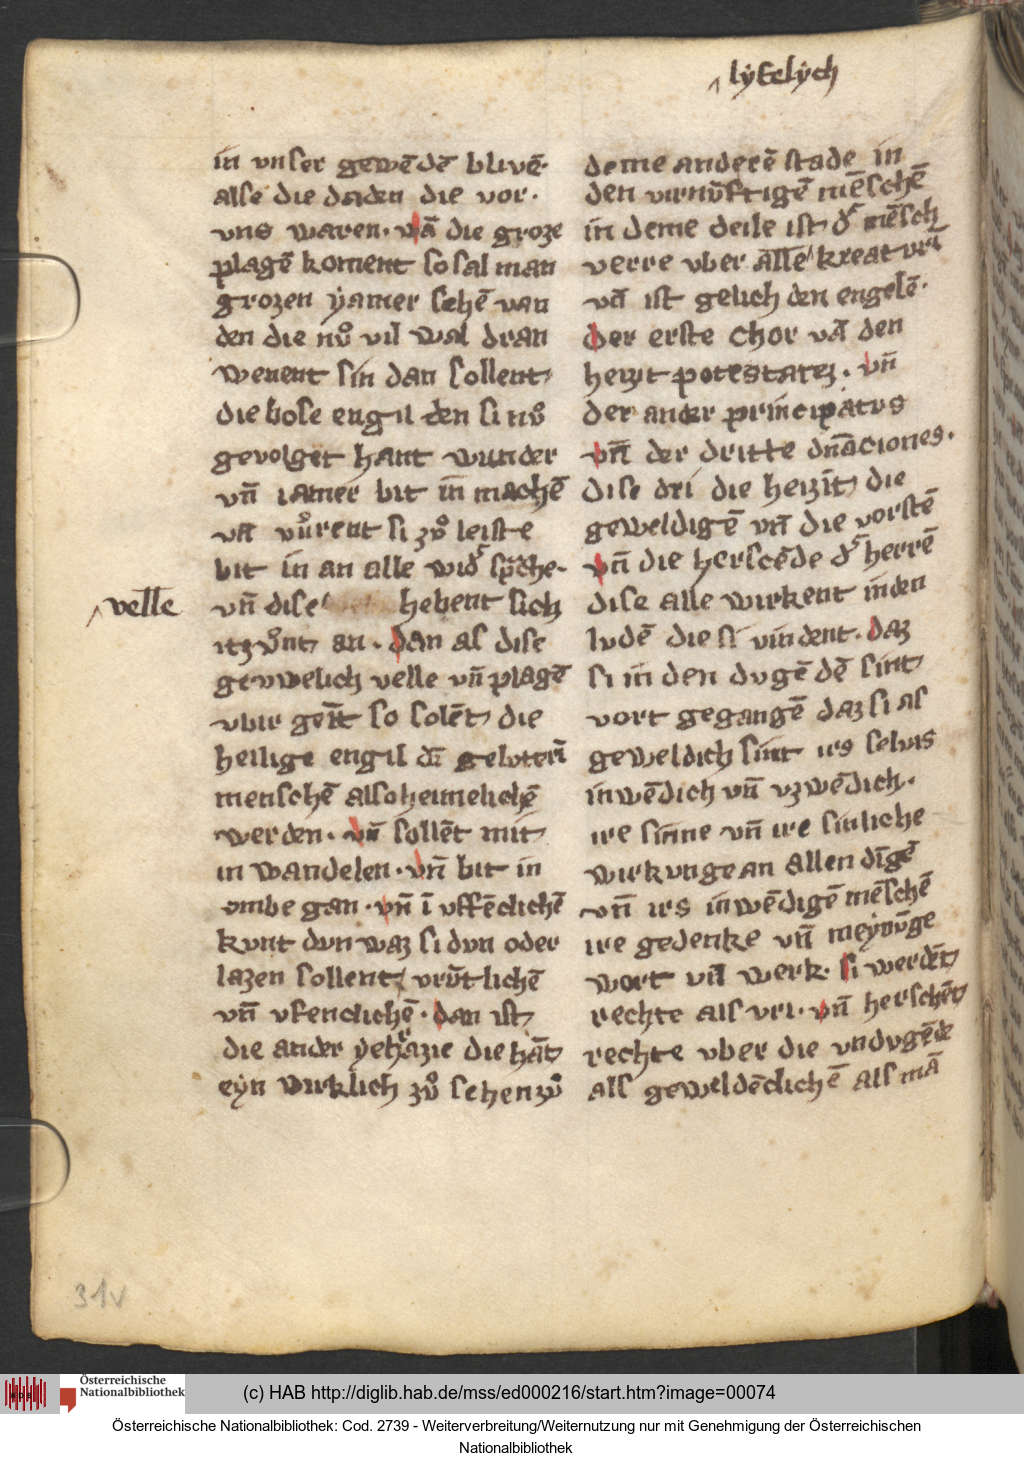 lẏẜelẏch
in vnser gewēdē bliuē·
alse die daden die vor·
vns waren· vā die groze
plagē koment so sal man
grozen ẏamer sehē van
den die nvͦ vil wal dran
wenent sin dan sollent
die bose engil den si nvͦ
geuolget hant wunder
vn̄ iamer bit in machē
vn̄ vvͦrent si zvͦ leiste
bit in an alle wid' sp̄che·
velle
vn̄ dise hebent sich
itzvͦnt an · dan als dise
geuwelich velle vn̄ plagē
vbir geīt so solēt die
heilige engil dē geluterī
menschē also heimelichē
werden· vn̄ sollēt mit
in wandelen· vn̄ bit in
ombe gan· vn̄ ī vffēclichē
kunt dvn waz si dvn oder
lazen sollent vrūtlichē
vn̄ vfenclichē· dan ist
die ander ẏeharzie die hāt
eẏn wirklich zvͦ sehen zvͦ
deme anderē stade in
den virnv̄ftigē mēschē
in deme deile ist d' mēsch
verre vber alle kreatvrē
vn̄ ist gelich den engelē·
der erste chor vā den
heizit potestatez· vn̄
der ander principatvs
vn̄ der dritte dn̄aciones·
dise dri die heizīt die
geweldigē vn̄ die vorstē
vn̄ die herscēde d' herrē
dise alle wirkent in den
ludē die si vindent· daz
si in den dvgēdē sint
vort gegangē daz si als
geweldich sint irs selvis
inwēdich vn̄ vzwēdich·
ire sinne vn̄ ire sinliche
wirkvnge an allen dīgē
vn̄ irs inwēdigē mēschē
ire gedenke vn̄ meẏnv̄ge
wort vn̄ werk· si werdēt
rechte als vri· vn̄ herschēt
rechte vber die vndvgēde
als geweldēclichē als mā
31v
Österreichische
Nationalbibliothek
(c) HAB http://diglib.hab.de/mss/ed000216/start.htm?image=00074
Österreichische Nationalbibliothek: Cod. 2739 - Weiterverbreitung/Weiternutzung nur mit Genehmigung der Österreichischen
Nationalbibliothek